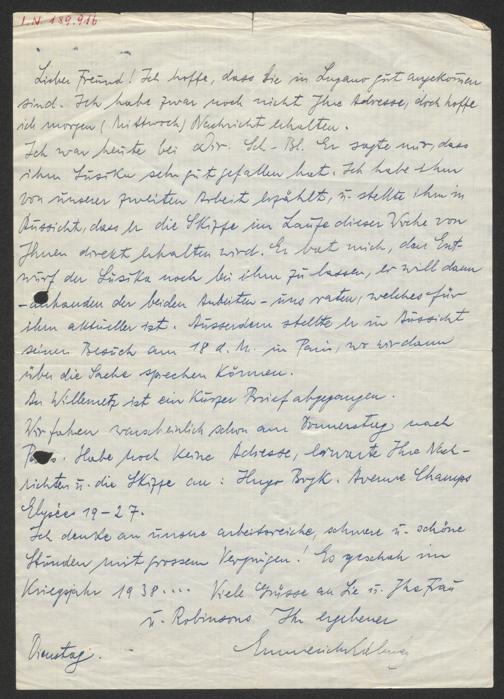 I.N. 189.916
Lieber Freund! Ich hoffe, dass Sie in Lugano gut angekommen
sind. Ich habe zwar noch nicht Ihre Adresse, doch hoffe
ich morgen (Mittwoch) Nachricht erhalten.
Ich war heute bei Dir. Sch-Bl. Er sagte mir, dass
ihm Susika sehr gut gefallen hat. Ich habe ihm
von unserer zweiten Arbeit erzählt, u. stellte ihm in
Aussicht, dass er die Skizze im Laufe dieser Woche von
Ihnen direkt erhalten wird. Er bat mich, den Ent-
wurf der Susika noch bei ihm zu lassen, er will dann
- anhanden der beiden Arbeiten - uns raten, welches für
ihn aktueller ist. Ausserdem stellte er in Aussicht
seinen Besuch am 18 d. M. in Paris, wo wir dann
über die Sache sprechen können.
An Willemetz ist ein kurzer Brief abgegangen.
Wir fahren warscheinlich schon am Donnerstag nach
Habe noch keine Adresse, erwarte Ihre Nach-
richten u. die Skizze an: Hugo Bryk. Avenue Champs
Elysées 19-27.
Ich denke an unsere arbeitsreiche, schwere u. schöne
Stunden mit grossem Vergnügen! Es geschah im
Kriegsjahr 1938.... Viele Grüsse an Sie u. Ihre Frau
u. Robinsons Ihr ergebener
Dienstag.